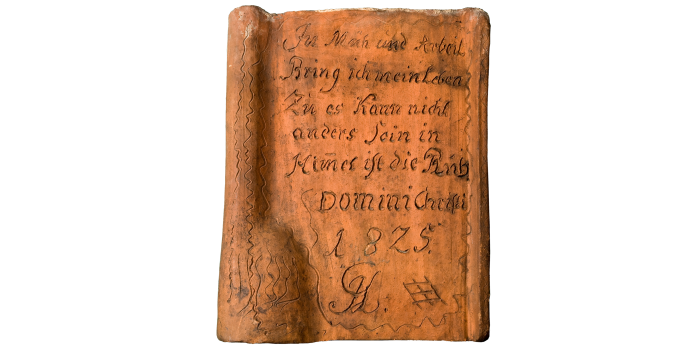 In Müh und Arbeit
Bring ich mein Leben
Zu es Kann nicht
anders Sein in
Him̄el ist die Ruh
Domini Christi
1825.